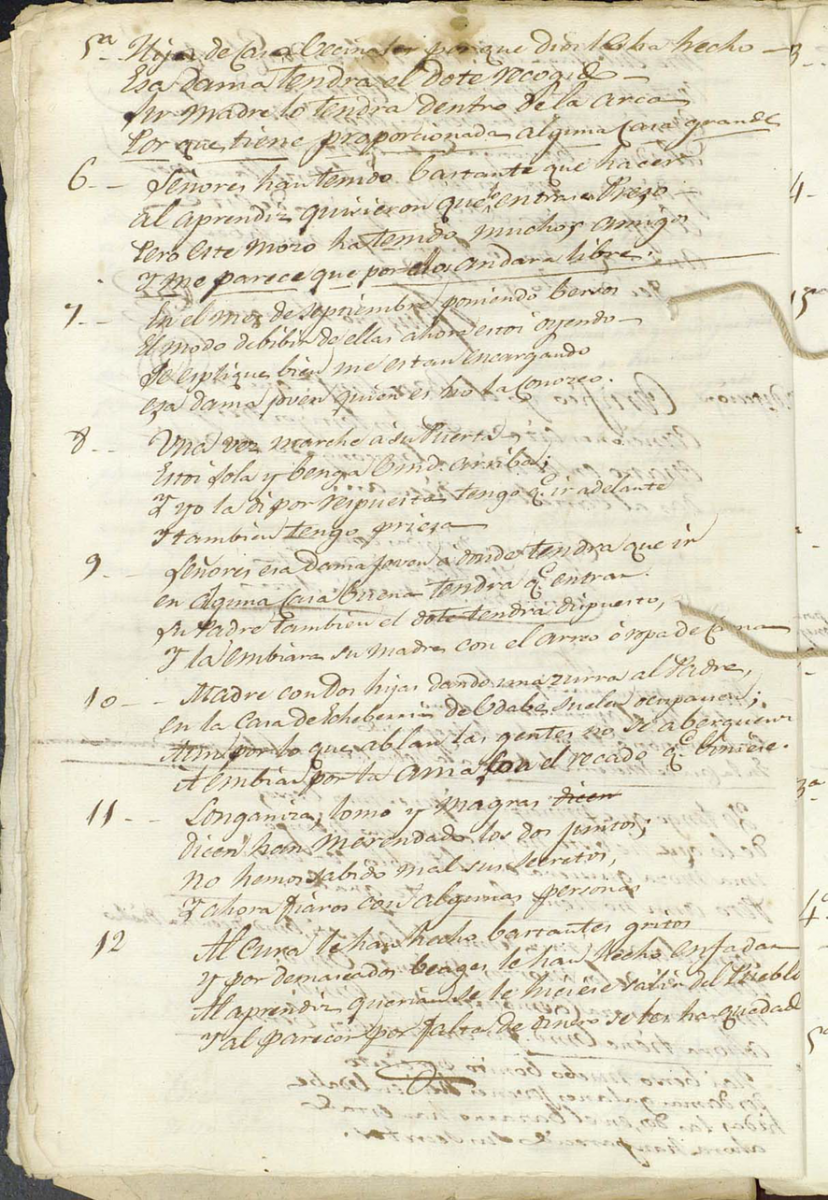 5ª Hijas de Casa Vecinal es porque dios la ha hecho
Esa dama tendra el dote recogido
su madre lo tendra dentro de la arca
Por que tiene proporcionada alguna casa grande
6 Señores han tenido bastante que hacer
al aprendiz quisieron que entrase Preso
Pero este mozo ha tenido muchos amigos
Y me parece que por ellos andara libre.
7 En el mes de septiembre poniendo bersos
El modo de bibir de ellas ahora estoi oyendo
Se esplique bien me estan encargando
esa dama joven quien es no la Conozco.
8 Una vez marche á su Puerta
Estoi sola y benga Vmd. arriba;
Y yo la di por respuesta tengo q.e ir adelante
Y tambien tengo priesa
9 Señores esa dama joven á donde tendra que ir
en alguna Casa buena tendra q.e entrar.
su Padre tambien el dote tendra dispuesto,
Y la embiara su madre con el arreo ó ropa de Cama
10 Madre con dos hijas dando una zurra al Padre,
en la Casa de Echeberria de Odabe suelen ocuparse;
Aun por lo que ablan las gentes no se aberguenzan
A embiar por la ama con el recado q.e biniese.
11 Longaniza, lomo y magras dicen
dicen han merendado los dos juntos;
no hemos sabido mal sus secretos,
Y ahora fiaros con algunas personas
12 Al Cura le han hecho bastantes gritos
Y por demasiados beages le han hecho enfadar
Al aprendiz querian se le hiciese salir del Pueblo
Y al parecer por falta de dinero se les ha quedado
3
4
15ª
3ª
4ª
5ª